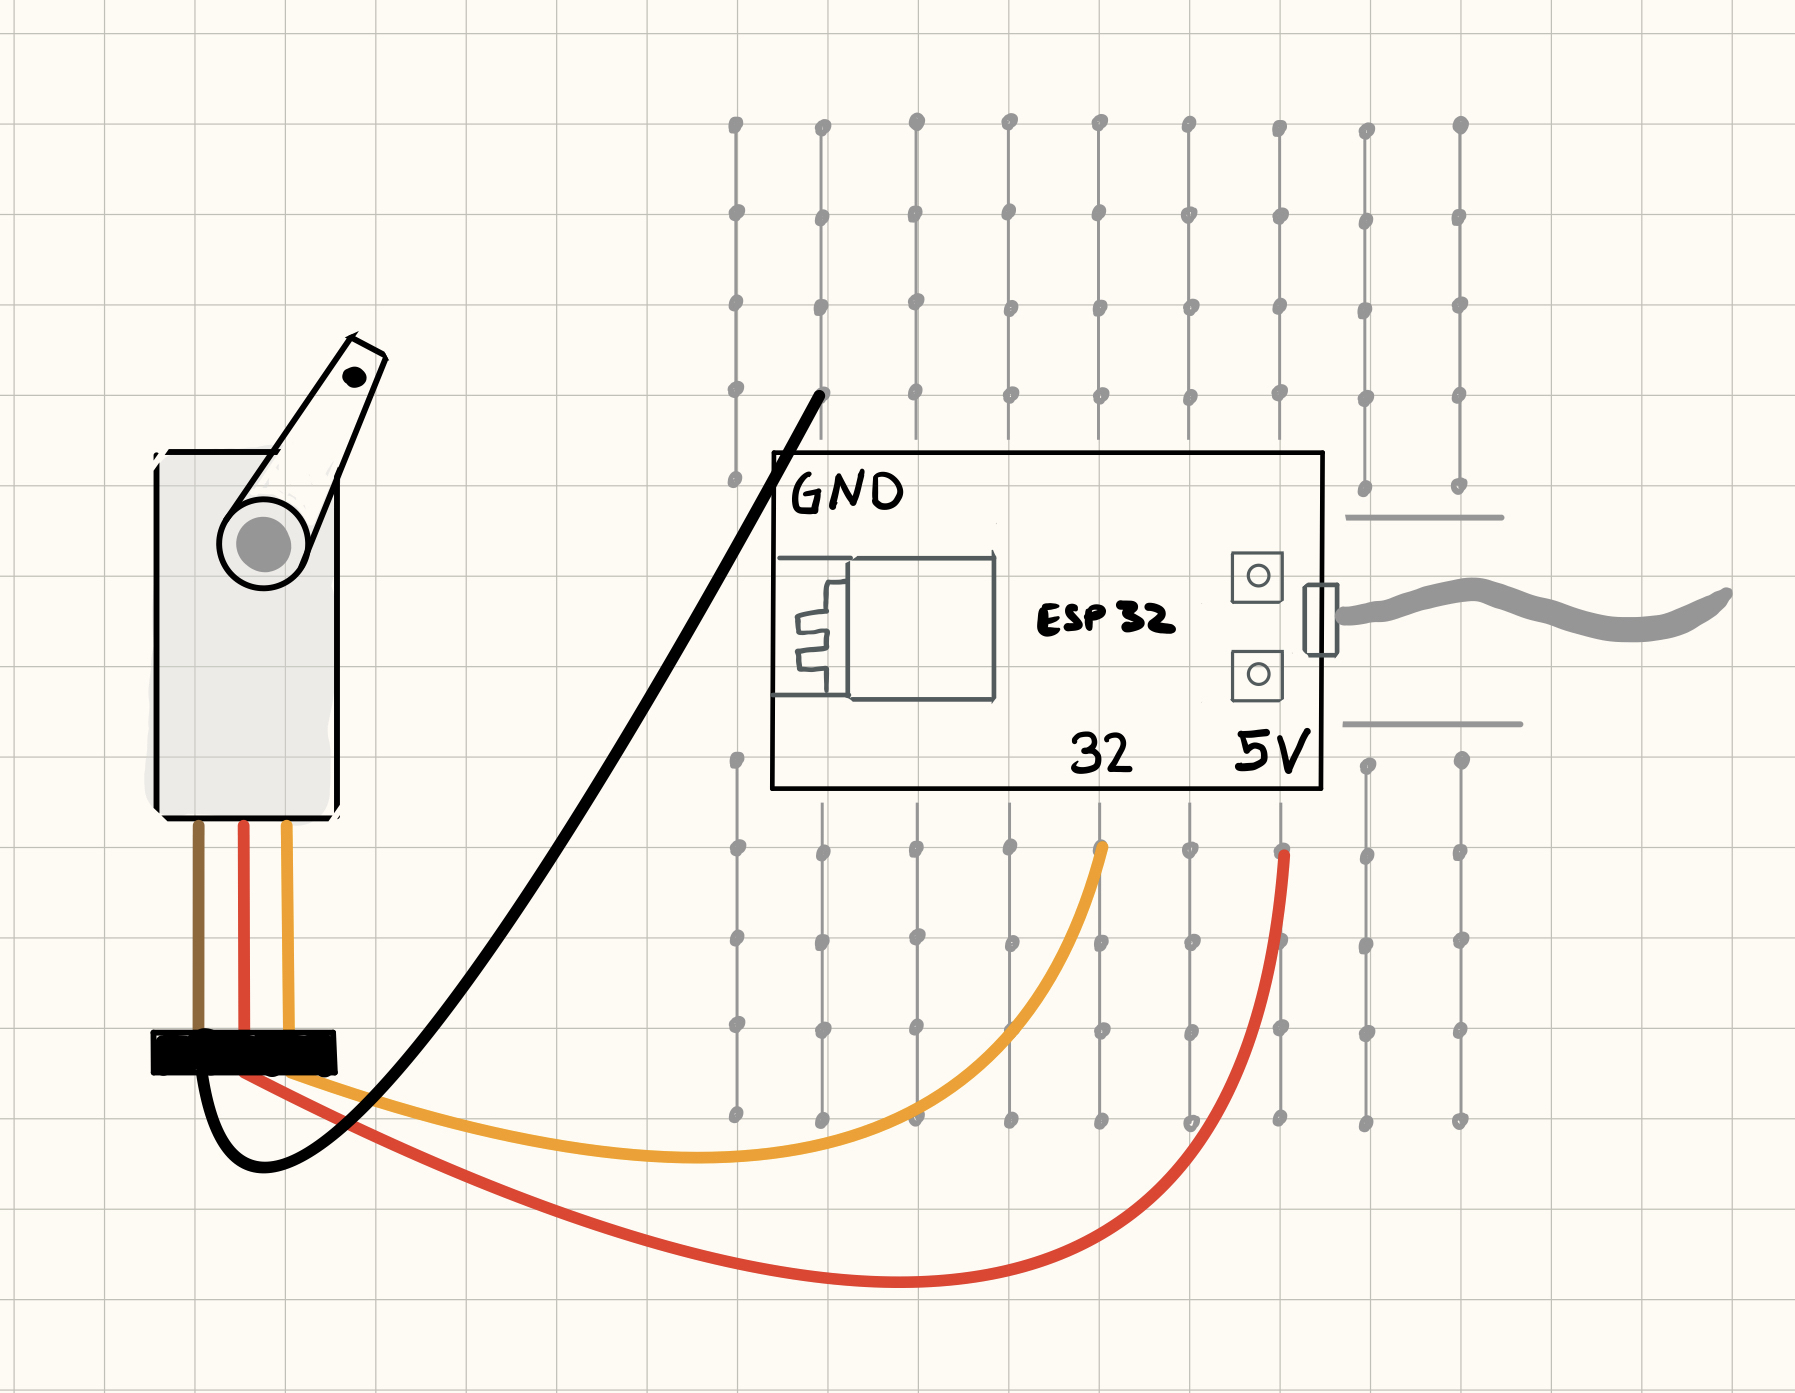 GND
ESP32
32
5V